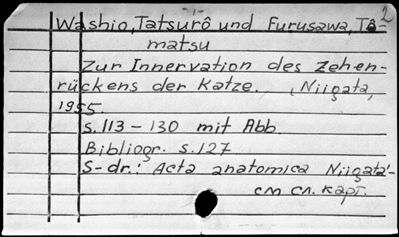 2
Washio, Tatsurô und Furusawa, Tâ-
matsu
Zur Innervation des Zehen-
rückens der Katze. (Niigata,
1955.
s. 113 - 130 mit Abb.
Bibliogr. s. 127
S-dr.: Acta anatomica Niigata-
см сл. карт.